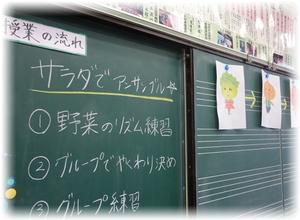 授業の流れ
サラダでアンサンブル☆
①野菜のリズム練習
②グループでやくわり決め
③グループ練習